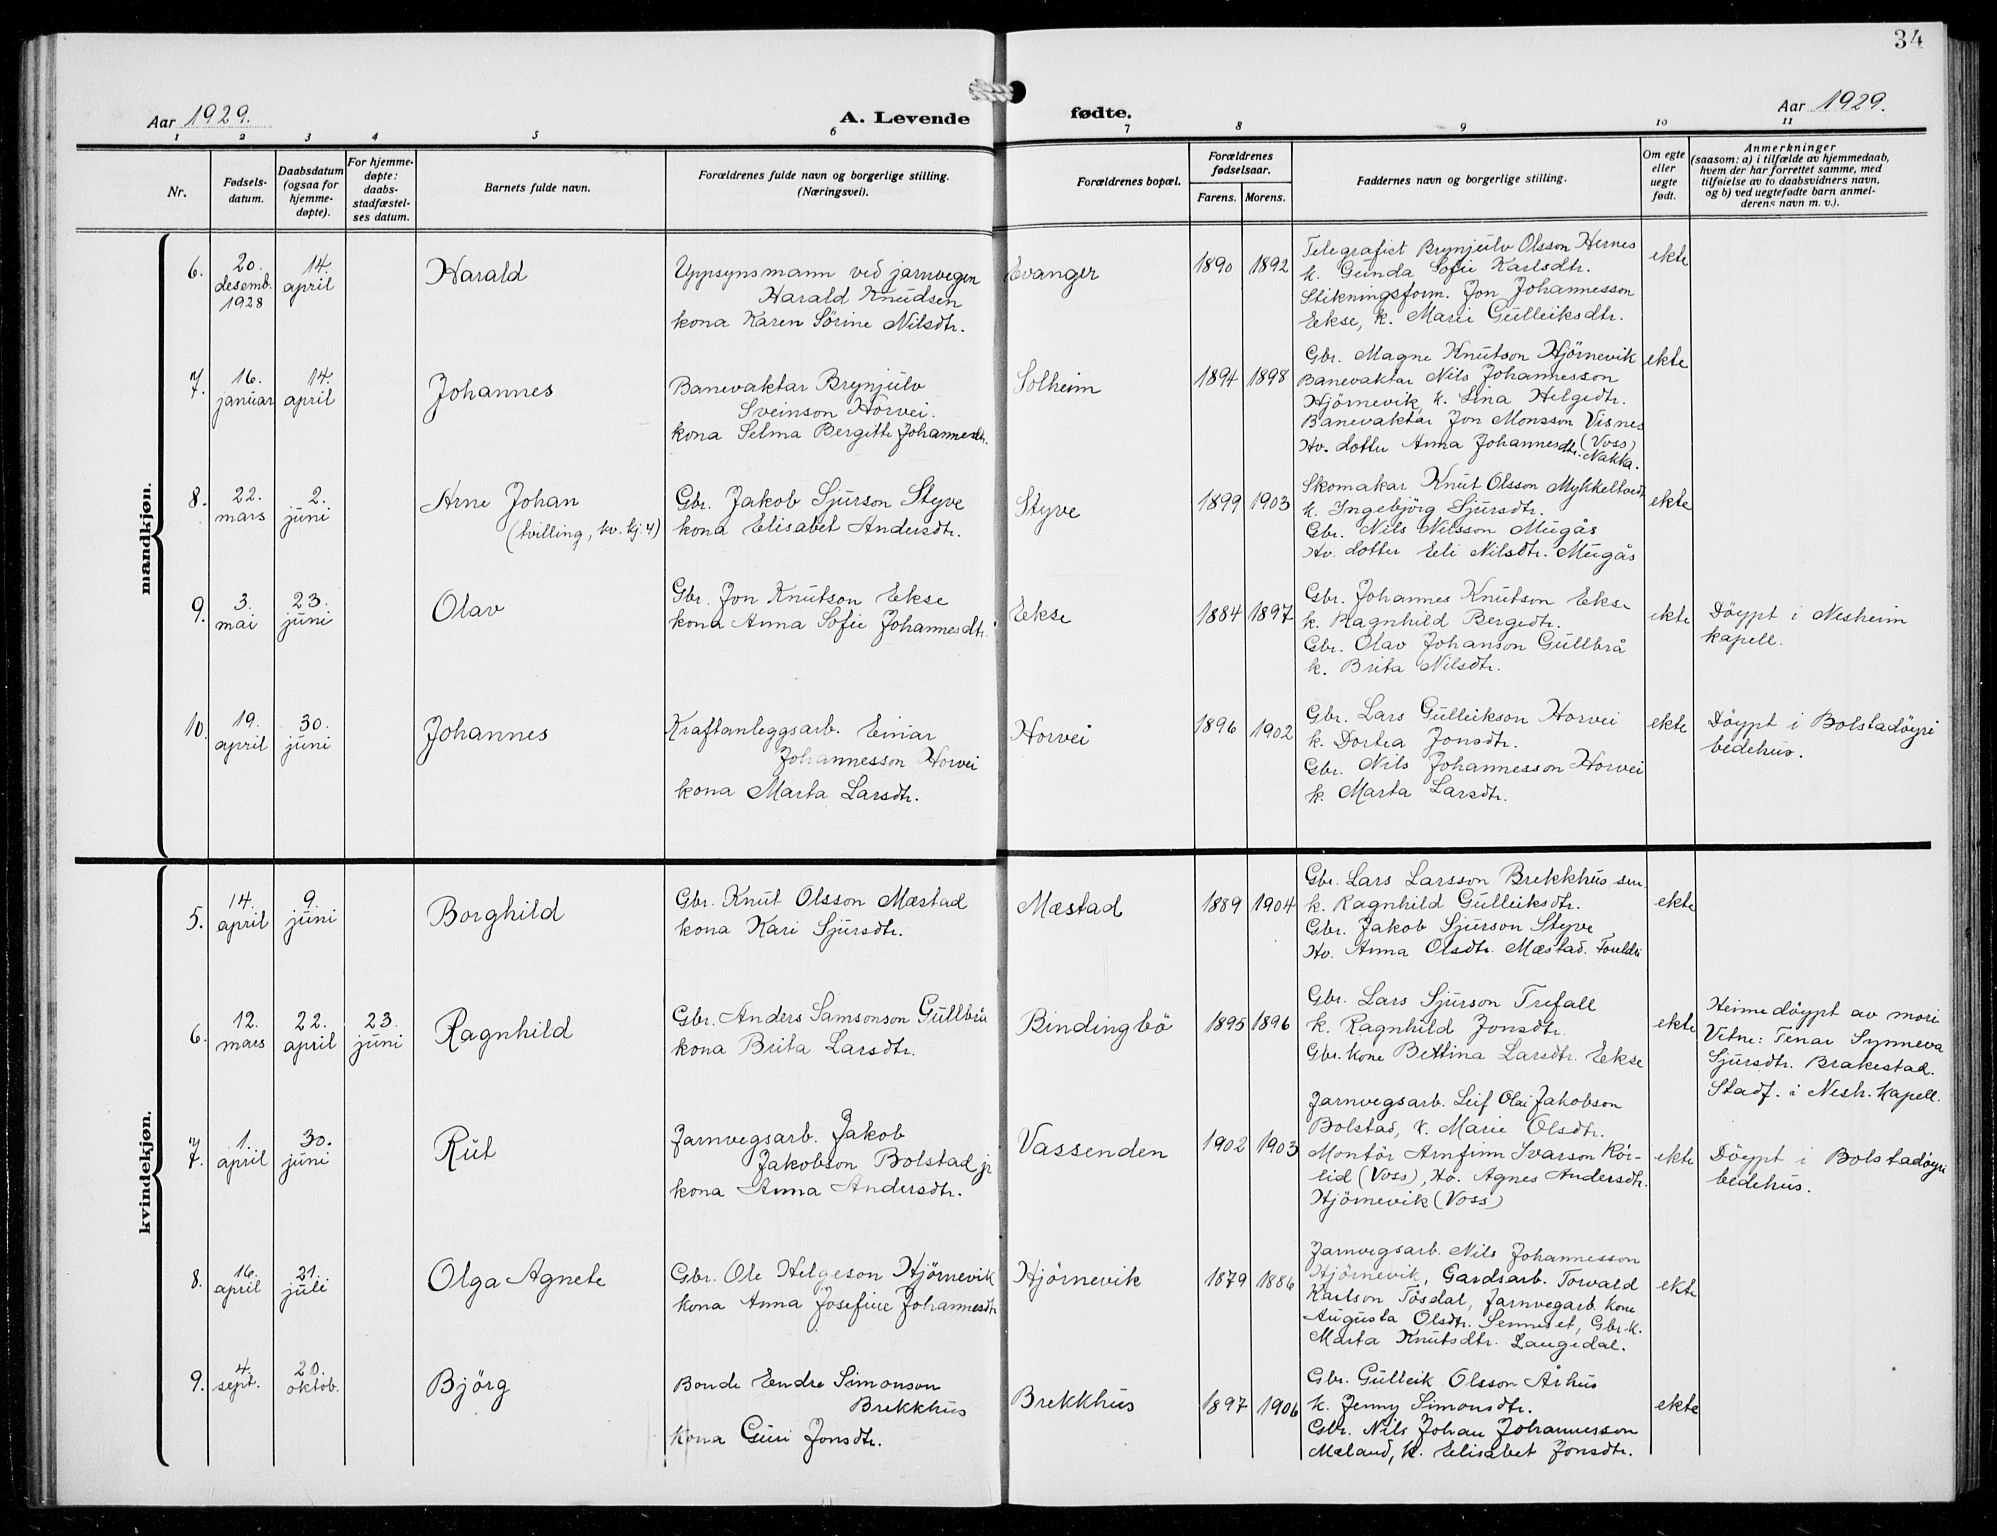 34
Aar 1929.
A. Levende fødte.
Aar 1929.
1 2 3 4 5 6 7 8 9 10 11
Nr.
Fødsels-
datum.
Daabsdatum
(ogsaa for
hjemme-
døpte).
For hjemme-
døpte:
daabs-
stadfæstel-
ses datum.
Barnets fulde navn.
Forældrenes fulde navn og borgerlige stilling.
(Næringsvei).
Forældrenes bopæl.
Forældrenes
fødselsaar.
Farens. Morens.
Faddernes navn og borgerlige stilling.
Om egte
eller
uegte
født.
Anmerkninger
(saasom: a) i tilfælde av hjemmedaab,
hvem der har forrettet samme, med
tilføielse av to daabsvidners navn,
og b) ved uegtefødte barn anmel-
derens navn m. v.).
mandkjøn.
6.
20.
desemb.
1928
14.
april
Harald
Uppsynsmann ved jarnvegen
Harald Knudsen
kona Karen Sørine Nilsdtr.
Evanger
1890 1892
Telegrafist Brynjulv Olsson Hernes
k. Gunda Sofie Karlsdtr.
Stikningsform. Jon Johannesson
Eekse, k. Marie Gulleiksdtr.
ekte
7.
16.
januar
14.
april
Johannes
Banevaktar Brynjulv
Sveinson Horvei.
kona Selma Bergitte Johannesdtr.
Solheim
1894 1898
Gbr. Magne Knutson Hjørnevik
Banevaktar Nils Johannesson
Hjørnevik, k. Lina Helgedtr.
Banevaktar Jon Monsson Visnes
(Voss)
Ho. dotter Anna Johannesdtr. Nakka.
ekte
8.
22.
mars
2.
juni
Arne Johan
(tvilling, kv. kj. 4)
Gbr. Jakob Sjurson Styve
kona Elisabet Andersdtr.
Styve
1899 1903
Skomakar Knut Olsson Mykkeltvedt
k. Ingebjörg Sjursdtr.
Gbr. Nils Nilsson Mugås
Ho. dotter Eli Nilsdtr. Mugås
ekte
9.
3.
mai
23.
juni
Olav
Gbr. Jon Knutson Eekse
kona Anna Sofie Johannesdtr.
Eekse
1884 1897
Gbr. Johannes Knutson Eekse
k. Ragnhild Bergedtr.
Gbr. Olav Johanson Gullbrå
k. Brita Nilsdtr.
ekte
Döypt i Nesheim
kapell.
10.
19.
april
30.
juni
Johannes
Kraftanleggsarb. Einar
Johannesson Horvei
kona Marta Larsdtr.
Horvei
1896 1902
Gbr. Lars Gulleikson Horvei
k. Dortea Jonsdtr.
Gbr. Nils Johannesson Horvei
k. Marta Larsdtr.
ekte
Döypt i Bolstadöyri
bedehus.
kvindekjøn.
5.
14.
april
9.
juni
Borghild
Gbr. Knut Olsson Mæstad
kona Kari Sjursdtr.
Mæstad
1889 1904
Gbr. Lars Larsson Brekkhus sen.
k. Ragnhild Gulleiksdtr.
Gbr. Jakob Sjurson Styve
Ho. Anna Olsdtr. Mæstad.
ekte
6.
12.
mars
22.
april
23.
juni
Ragnhild
Gbr. Anders Samsonson Gullbrå
kona Brita Larsdtr.
Bindingbö
1895 1896
Gbr. Lars Sjurson Trefall
k. Ragnhild Jonsdtr.
Gbr. kone Bettina Larsdtr. Eekse
ekte
Heimedöypt av mori
Vitne: Tenar Synneva
Sjursdtr. Brakestad.
Stadf. i Nesh. kapell.
7.
1.
april
30.
juni
Rut
Jarnvegsarb. Jakob
Jakobson Bolstad jr
kona Anna Andersdtr.
Vassenden
1902 1903
Jarnvegsarb. Leif Olai Jakobson
Bolstad, k. Marie Olsdtr.
Montör Arnfinn Ivarson Rör-
lid (Voss), Ho. Agnes Andersdtr.
Hjörnevik (Voss)
ekte
Döypt i Bolstadöyri
bedehus.
8.
16.
april
21.
juli
Olga Agnete
Gbr. Ole Helgeson Hjörnevik
kona Anna Josefine Johannesdtr
Hjörnevik
1879 1886
Jarnvegsarb. Nils Johannesson
Hjörnevik, Gardsarb. Torvald
Karlson Tösdal, Jarnvegarb. kone
Augusta Olsdtr. Senneset, Gbr. k.
Marta Knutsdtr. Langedal.
ekte
9.
4.
sept.
20.
oktob.
Björg
Bonde Endre Simonson
Brekkhus
kona Guri Jonsdtr.
Brekkhus
1897 1906
Gbr. Gulleik Olsson Århus
k. Jenny Simonsdtr.
Gbr. Nils Johan Johannesson
Mæland, k. Elisabet Jonsdtr.
ekte